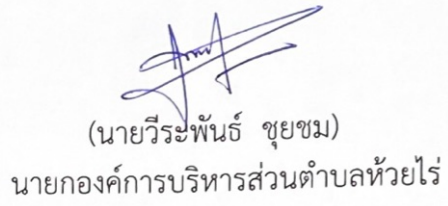 (นายวีระพันธ์ ชุยชม)
นายกองค์การบริหารส่วนตำบลห้วยไร่